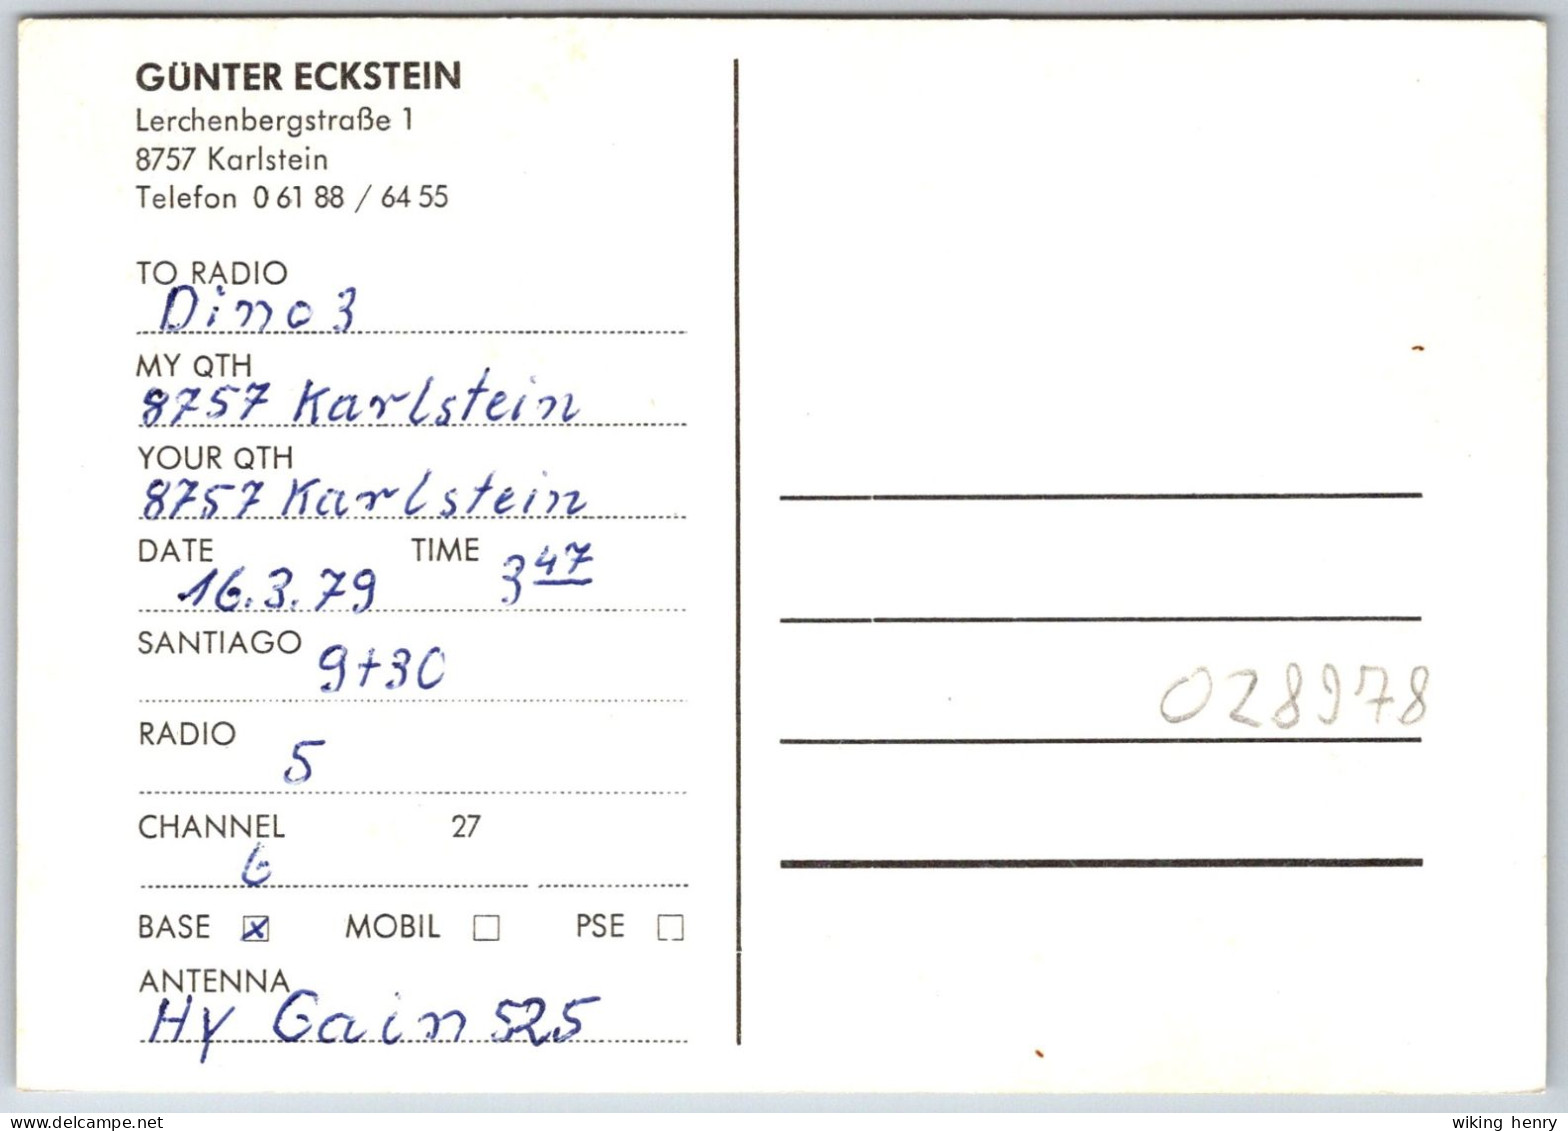 GÜNTER ECKSTEIN
Lerchenbergstraße 1
8757 Karlstein
Telefon 0 61 88 / 64 55
TO RADIO
Dino 3
MY QTH
8757 Karlstein
YOUR QTH
8757 Karlstein
DATE TIME
16.3.79 3 47
SANTIAGO
9+30
RADIO
5
CHANNEL 27
6
BASE MOBIL PSE
ANTENNA
Hy Gain 525
028978
wiking henry